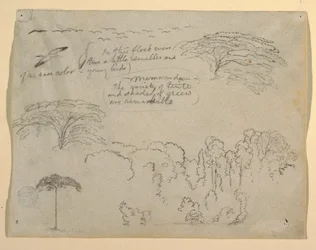 In this flock were
three a little smaller and
of the same color (young birds)
Memorandum
The variety of tints
and shades of green
are remarkable